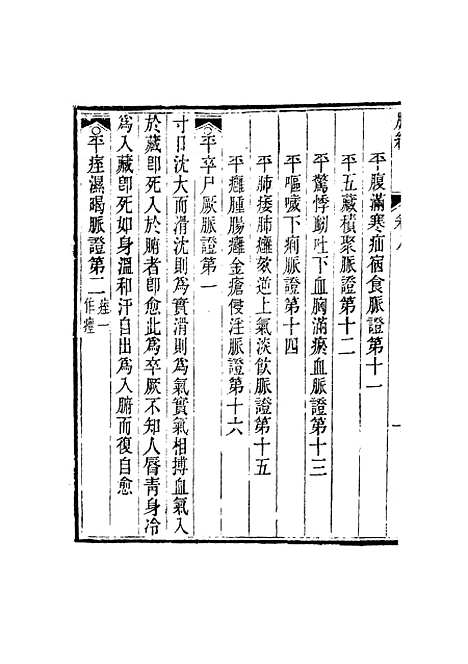 平腹滿寒疝宿食脈證第十一
平五藏積聚脈證第十二
平驚悸衄吐下血胸滿瘀血脈證第十三
平嘔噦下痢脈證第十四
平肺痿肺癰欬逆上氣淡飲脈證第十五
平癰腫腸癰金瘡侵淫脈證第十六
平卒尸厥脈證第一
寸口沈大而滑沈則爲實滑則爲氣實氣相搏血氣入
於藏卽死入於腑者卽愈此爲卒厥不知人脣青身冷
爲入藏卽死如身溫和汗自出爲入腑而復自愈
平痓濕暍脈證第二痓一作痙